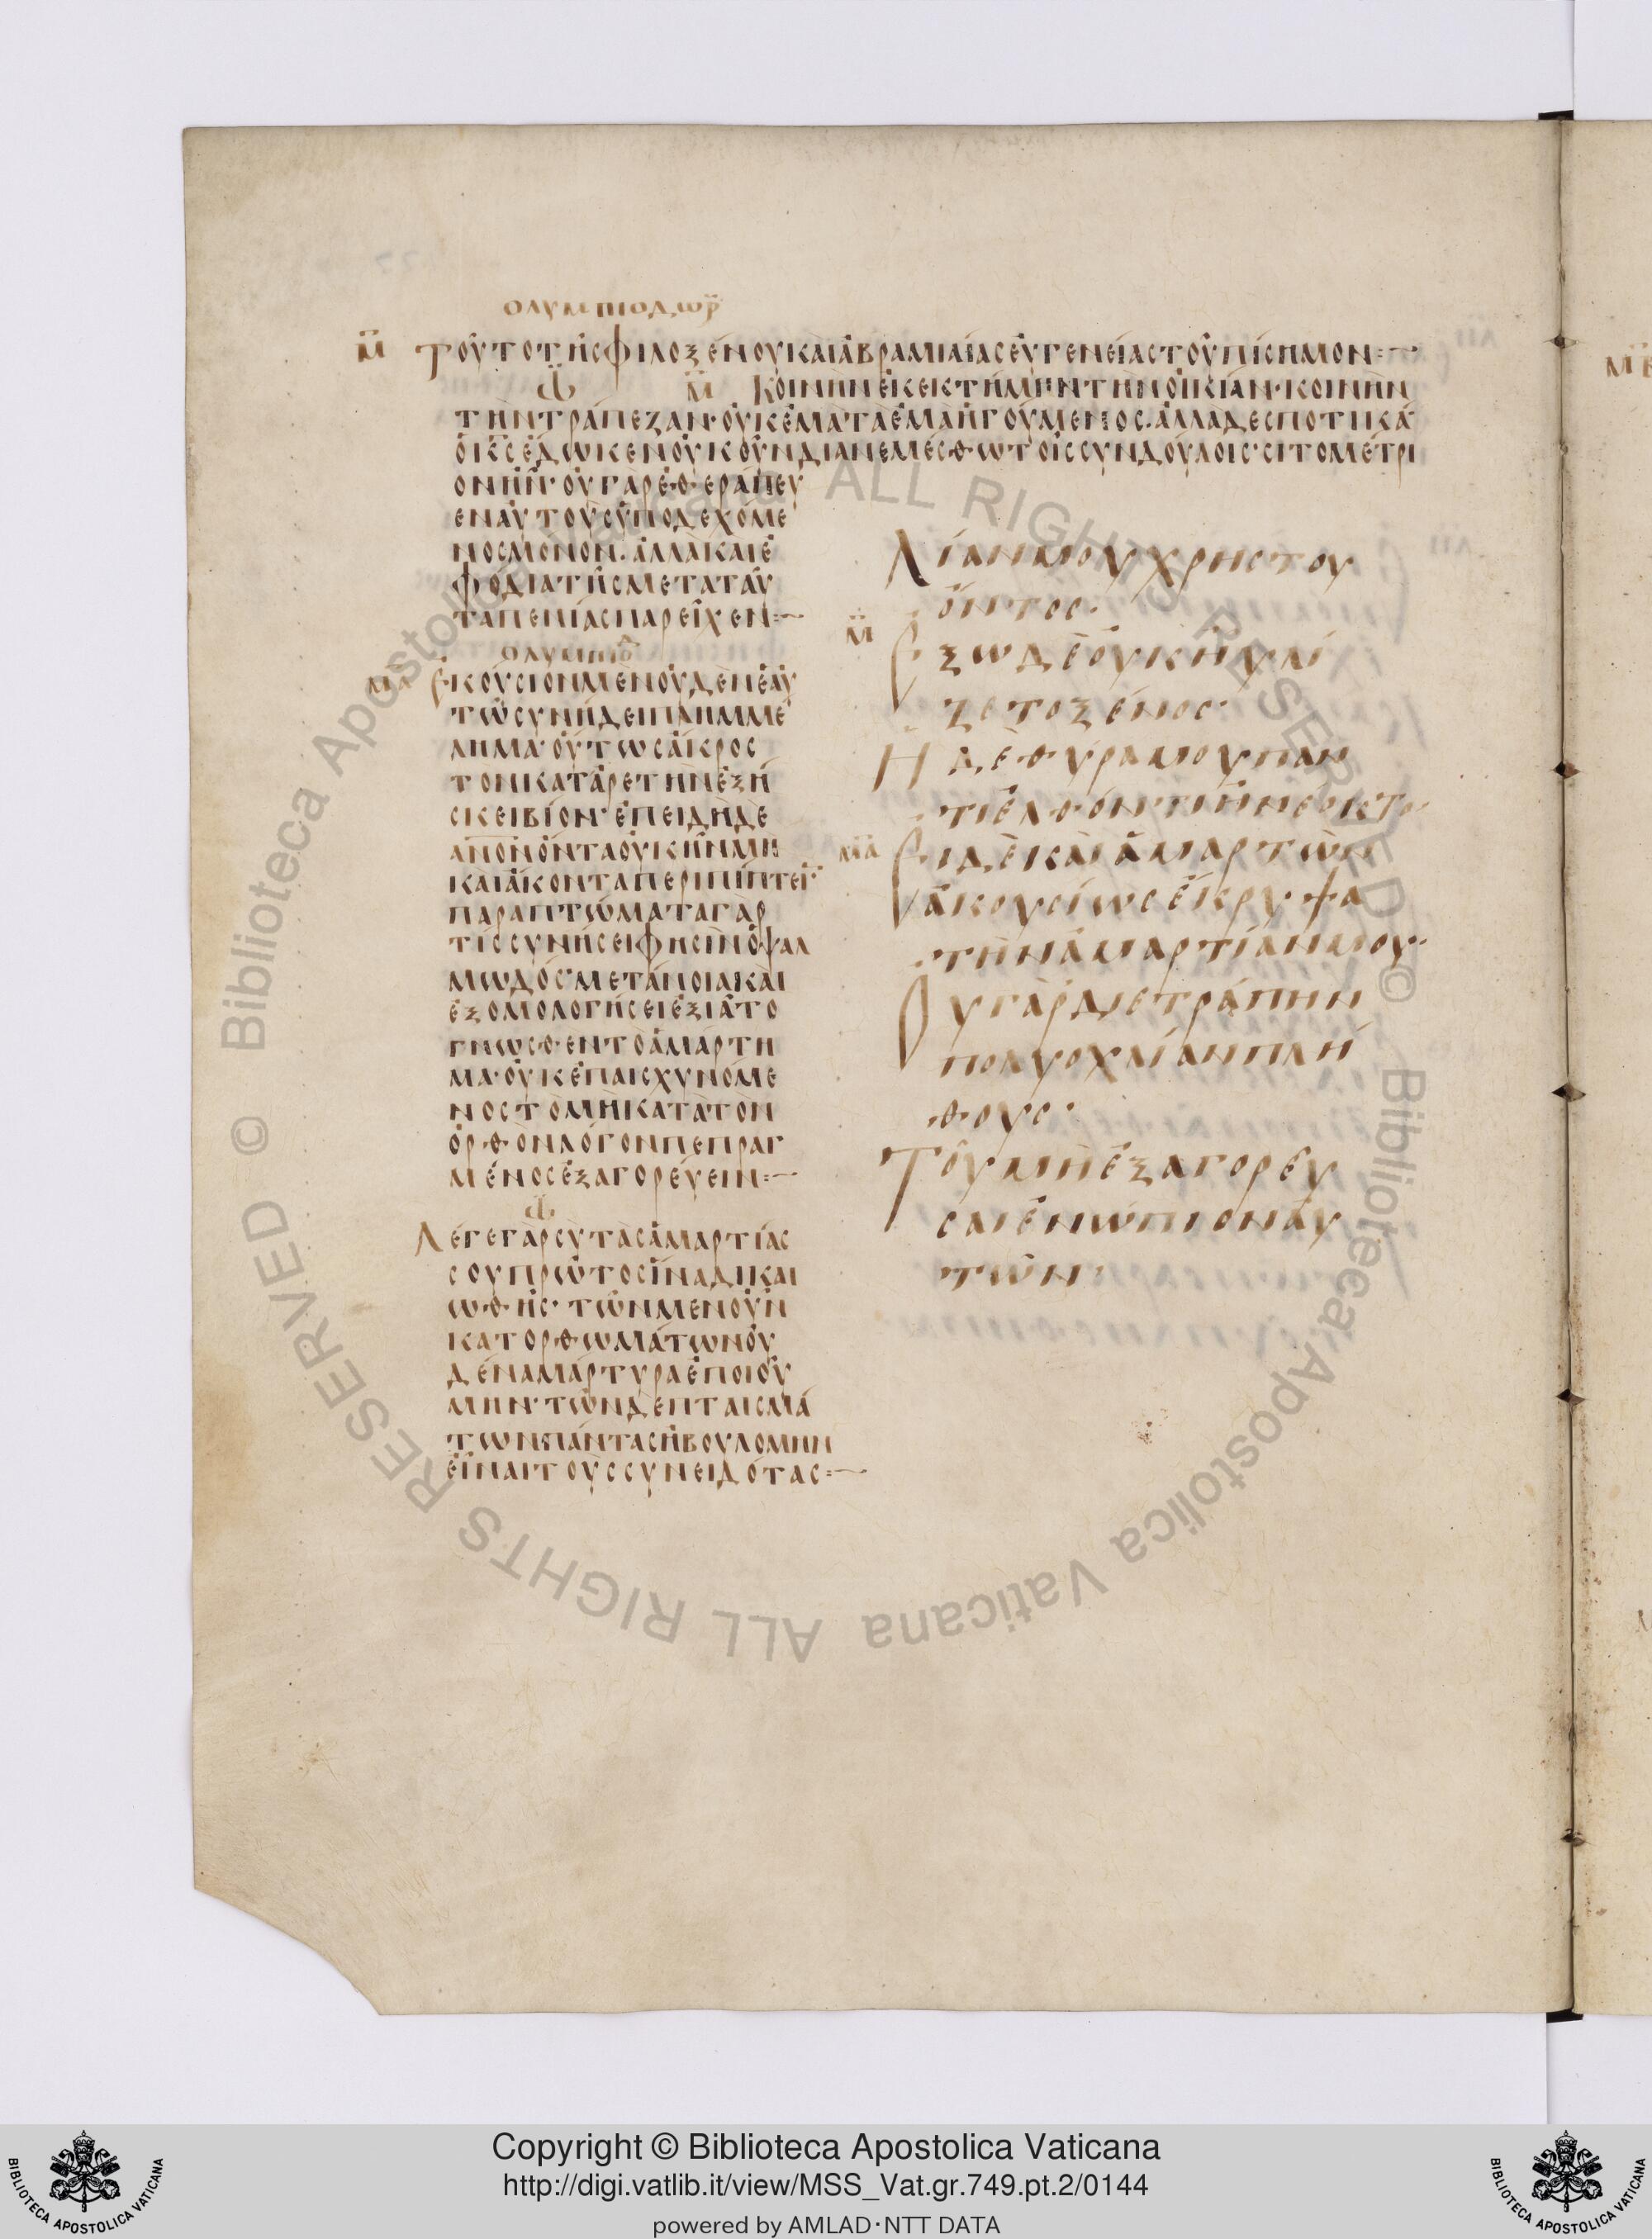 ολυμπιοδωρ
Μ Τοῦτο τῆς φιλοξένου καὶ ἀβραμιαίας εὐγενείας τοὐπίσημον
Μ Κοινὴν ἐκεκτήμην τὴν οἰκίαν· κοινὴν
τὴν τράπεζαν· οὐκ ἐμὰ τὰ ἐμὰ ἡγούμενος. ἀλλὰ δεσποτικὰ
ὁ κς ἔδωκεν οὐκοῦν διανεμέσθω τοῖς συνδούλοις· σιτομέτρι
ον ἦν· οὐ γὰρ ἐθεράπευ
εν αὐτοὺς ὑποδεχόμε
νος μόνον. ἀλλὰ καὶ ἐ
φόδια τῆς μετὰ ταῦ
τα πενίας παρεῖχεν
ολυμπιο
ΜΑ Ἑκούσιον μὲν οὐδὲν ἑαυ
τῷ συνῄδει πλημμέ
λημα· οὕτως ἄκρος
τὸν κατ ἀρετὴν ἐξή
σκει βίον· ἐπειδὴ δὲ
ανον ὄντα οὐκ ἦν μὴ
καὶ ἄκοντα περιπίπτειν·
παραπτώματα γὰρ
τίς συνήσει φησὶν ὁ ψαλ
μωδός· μετανοία καὶ
ἐξομολογήσει ἐξιᾶτο
γνωσθὲν τὸ ἁμάρτη
μα· οὐκ ἐπαισχυνόμε
νος τὸ μὴ κατὰ τὸν
ὀρθὸν λόγον πεπραγ
μένος ἐξαγορεύειν
Λέγε γὰρ σὺ τὰς ἁμαρτίας
σου πρῶτος ἵνα δικαι
ωθῇς· τῶν μὲν οὖν
κατορθωμάτων οὐ
δένα μάρτυρα ἐποιού
μην· τῶν δὲ πταισμά
των πάντας ἠβουλόμην
εἶναι τοὺς συνειδότας
Λίαν μου χρηστοῦ
ὄντος·
Μ Ἔξω δὲ οὐκ ηὐλί
ζετο ξένος·
Ἡ δὲ θύρα μου παν
τὶ ἐλθόντι ἠνέῳκτο·
ΜΑ Εἰ δὲ καὶ ἁμαρτὼν
ἀκουσίως ἔκρυψα
τὴν ἁμαρτίαν μου·
Οὐ γὰρ διετράπην
πολυοχλίαν πλή
θους·
Τοῦ μὴ ἐξαγορεῦ
σαι ἐνώπιον αὐ
τῶν·
© Biblioteca Apostolica Vaticana ALL RIGHTS RESERVED © Biblioteca Apostolica Vaticana ALL RIGHTS RESERVED
Copyright © Biblioteca Apostolica Vaticana
http://digi.vatlib.it/view/MSS_Vat.gr.749.pt.2/0144
powered by AMLAD·NTT DATA
BIBLIOTECA APOSTOLICA VATICANA
BIBLIOTECA APOSTOLICA VATICANA